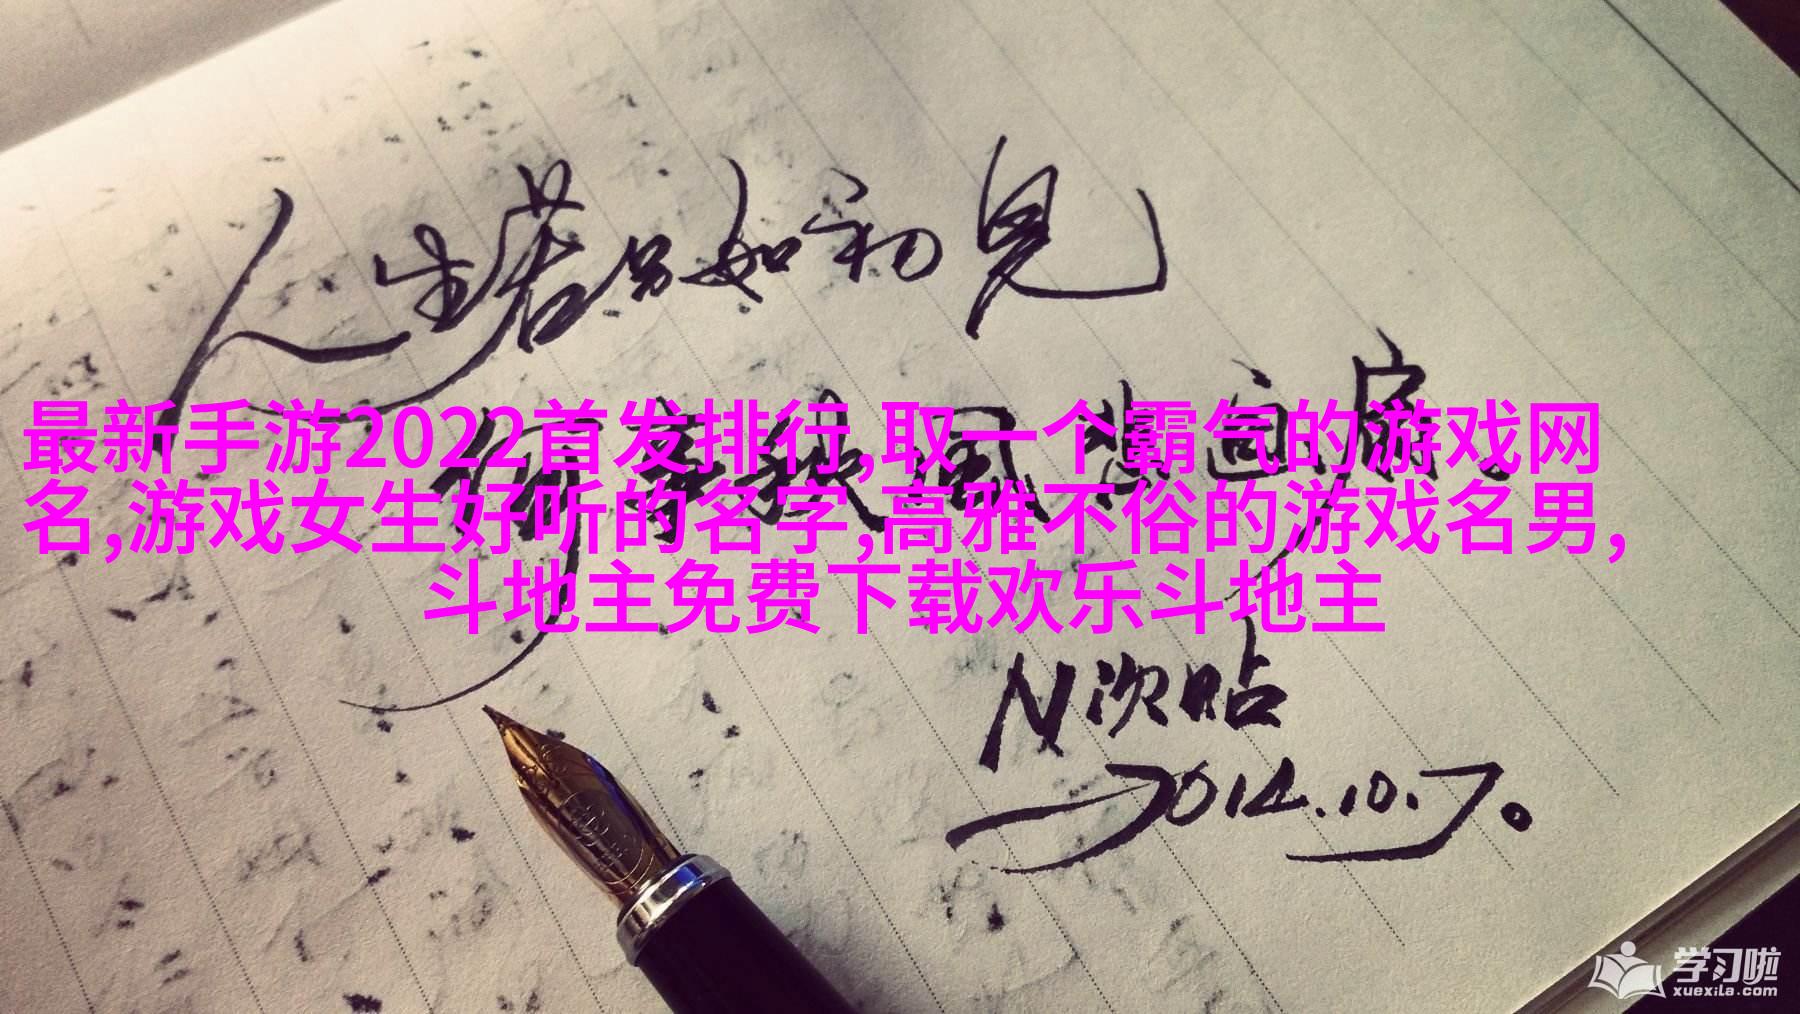 人生若只如初见
最新手游2022首发排行,取一个霸气的游戏网
名,游戏女生好听的名字,高雅不俗的游戏名男,
斗地主免费下载欢乐斗地主
何事秋风悲画扇。
N次贴
2014.10.7。
学习啦
xuexila.com